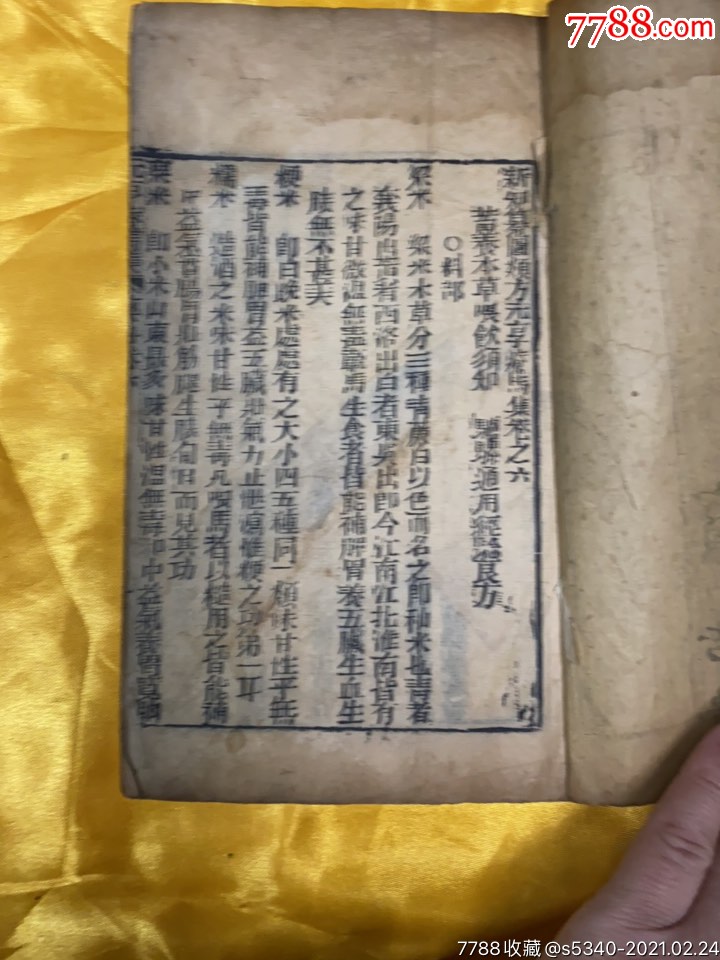 7788.com
新刻纂圖類方元亨療馬集卷之六
蓄養本草喂飲須知　騾駱通用經驗良方
〇料部
粱米　粱米本草分三種青黃白以色而名之即秫米也青者
襄陽出者西洛出白者東吳出即今江南江北淮南皆有
之味甘微溫無毒車馬生食者皆能補脾胃養五臟生血生
膘無不甚美
粳米　即白晚米處處有之大小四五種同一類味甘性平無
毒皆能補脾胃益五臟壯氣力止泄痢惟粳之功第一耳
糯米　造酒之米味甘性平無毒凡喂馬者以糙用之皆能補
中益氣香腸胃壯筋膜生膘旬日而見其功
粟米　即小米山東最多味甘性溫無毒和中益氣養胃
7788收藏@s5340-2021.02.24